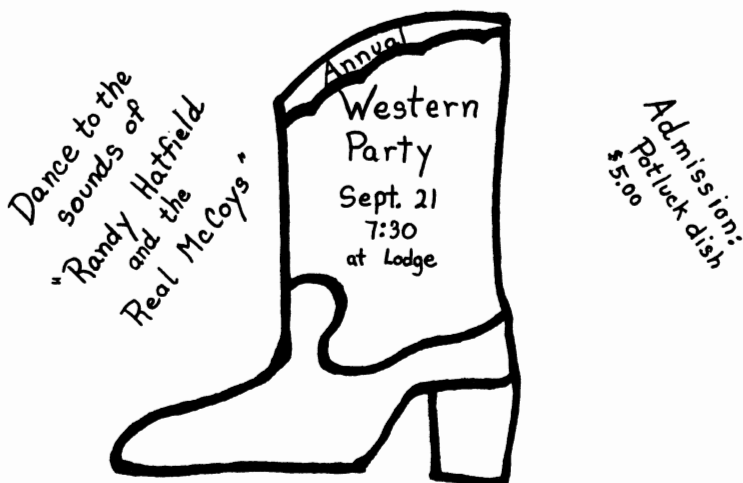 Dance to the
sounds of
"Randy Hatfield
and the
Real McCoys"
Annual
Western
Party
Sept. 21
7:30
at Lodge
Admission:
Potluck dish
$5.00